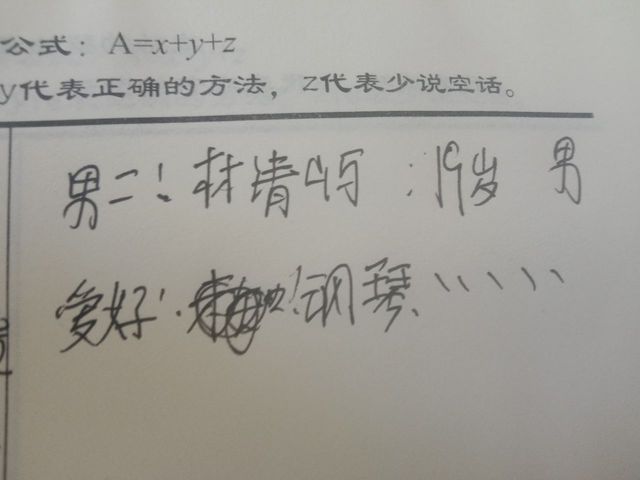 公式：A=x+y+z
y代表正确的方法，z代表少说空话。
男二！林清屿：19岁 男
爱好！钢琴、、、、、、